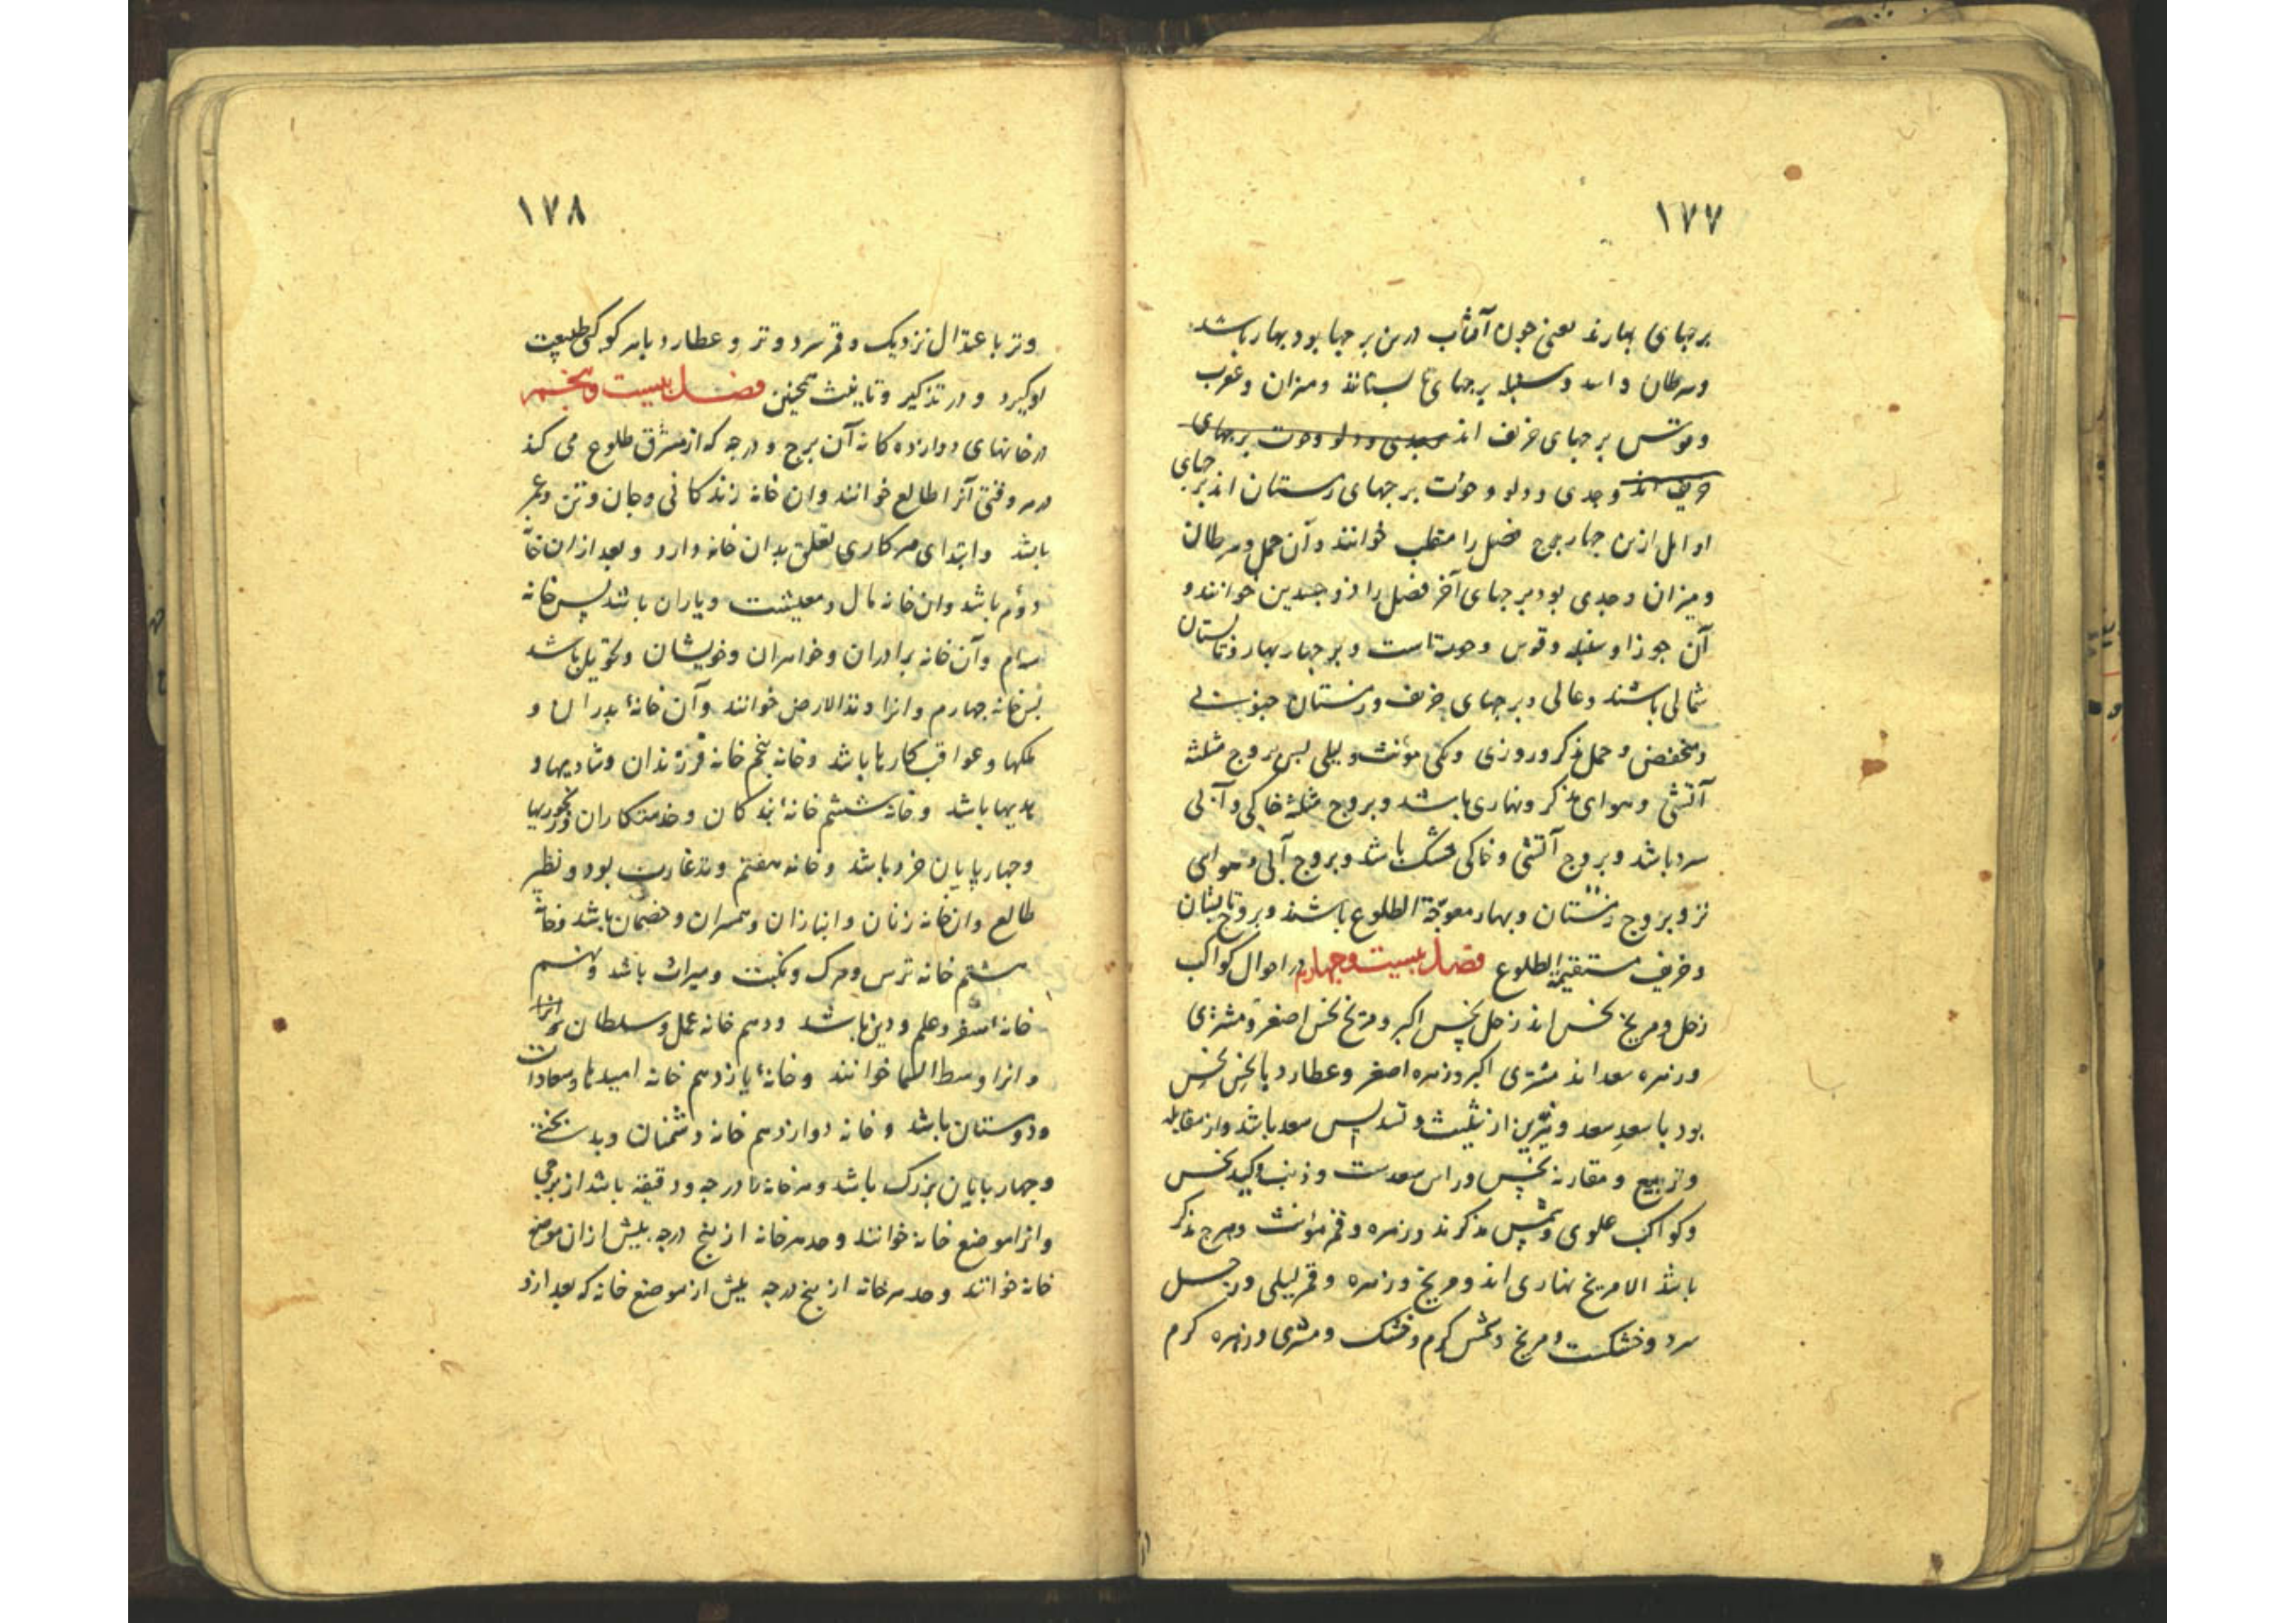 ١٧٧
برجهای بهارند یعنی چون آفتاب درین برجها بود بهار باشد
وسرطان و اسد و سنبله برجهای تابستانند و میزان و عقرب
و قوس برجهای خریف اند وجدی و دلو و حوت برجهای
خریف اند وجدی و دلو و حوت برجهای زمستان اند برجهای
اوایل ازین چهار فصل را منقلب خوانند و آن حمل و سرطان
و میزان و جدی بود برجهای آخر فصل را ذو جسدین خوانند و
آن جوزا و سنبله و قوس و حوت است و برجهار بهار و تابستان
شمالی باشند و عالی و برجهای خریف و زمستان جنوبی
و منخفض و حمل مذکر و روزی و یکی مؤنث و لیلی پس بروج مثلثه
آتشی و هوای مذکر و نهاری باشند و بروج مثلثه خاکی و آبی
سرد باشد و بروج آتشی و خاکی خشک باشد و بروج آبی و هوای
تر و بروج زمستان و بهار معوجة الطلوع باشند و بروج تابستان
و خریف مستقیمة الطلوع فصل بیست و چهارم در احوال کواکب
زحل و مریخ نحس اند زحل نحس اکبر و مریخ نحس اصغر و مشتری
و زهره سعد اند مشتری اکبر و زهره اصغر و عطارد با نحس نحس
بود با سعد سعد و نیرین از تثلیث و تسدیس سعد باشد و از مقابله
و تربیع و مقارنه نحس و راس سعدست و ذنب و کید نحس
و کواکب علوی و شمس مذکرند و زهره و قمر مؤنث و مذکر
باشد الا مریخ نهاری اند و مریخ و زهره و قمر لیلی و زحل
سرد و خشکست و مریخ و شمس گرم و خشک و مشتری و زهره گرم
١٧٨
و تر باعتدال نزدیک و قمر سرد و تر و عطارد با هر کوکبی طبیعت
او گیرد و در تذکیر و تانیث همچنین فصل بیست و پنجم
در خانهای دوازده کانه آن برج و درجه که از مشرق طلوع می کند
در هر وقتی آنرا طالع خوانند و ان خانه زندکانی و جان و تن و عمر
باشد و ابتدای هر کاری تعلق بدان خانه دارد و بعد از ان خانه
دوم باشد و ان خانه مال و معیشت و یاران باشد پس خانه
سیم و آن خانه برادران و خواهران و خویشان و تحویل باشد
پس خانه چهارم و انرا وتد الارض خوانند و آن خانهٔ پدران و
ملکها و عواقب کارها باشد و خانه پنجم خانه فرزندان و شادیها و
هدیها باشد و خانه ششم خانهٔ بندکان و خدمتکاران و رنجوریها
و چهارپایان خرد باشد و خانه هفتم وتد غارب بود و نظیر
طالع و ان خانه زنان و انبازان و همسران و خصمان باشد و خانه
هشتم خانه ترس و مرک و نکبت و میراث باشد و نهم
خانهٔ سفر و علم و دین باشد و دهم خانه عمل و سلطان
و انرا وسط السما خوانند و خانهٔ یازدهم خانه امیدها و سعادات
و دوستان باشد و خانه دوازدهم خانه دشمنان و بدبختی
و چهار پایان بزرک باشد و هر خانه تا درجه و دقیقه باشد از برجی
و انرا موضع خانه خوانند و حد هر خانه از پنج درجه پیش از ان موضع
خانه خوانند و حد هر خانه از پنج درجه پیش از موضع خانه که بعد ازو